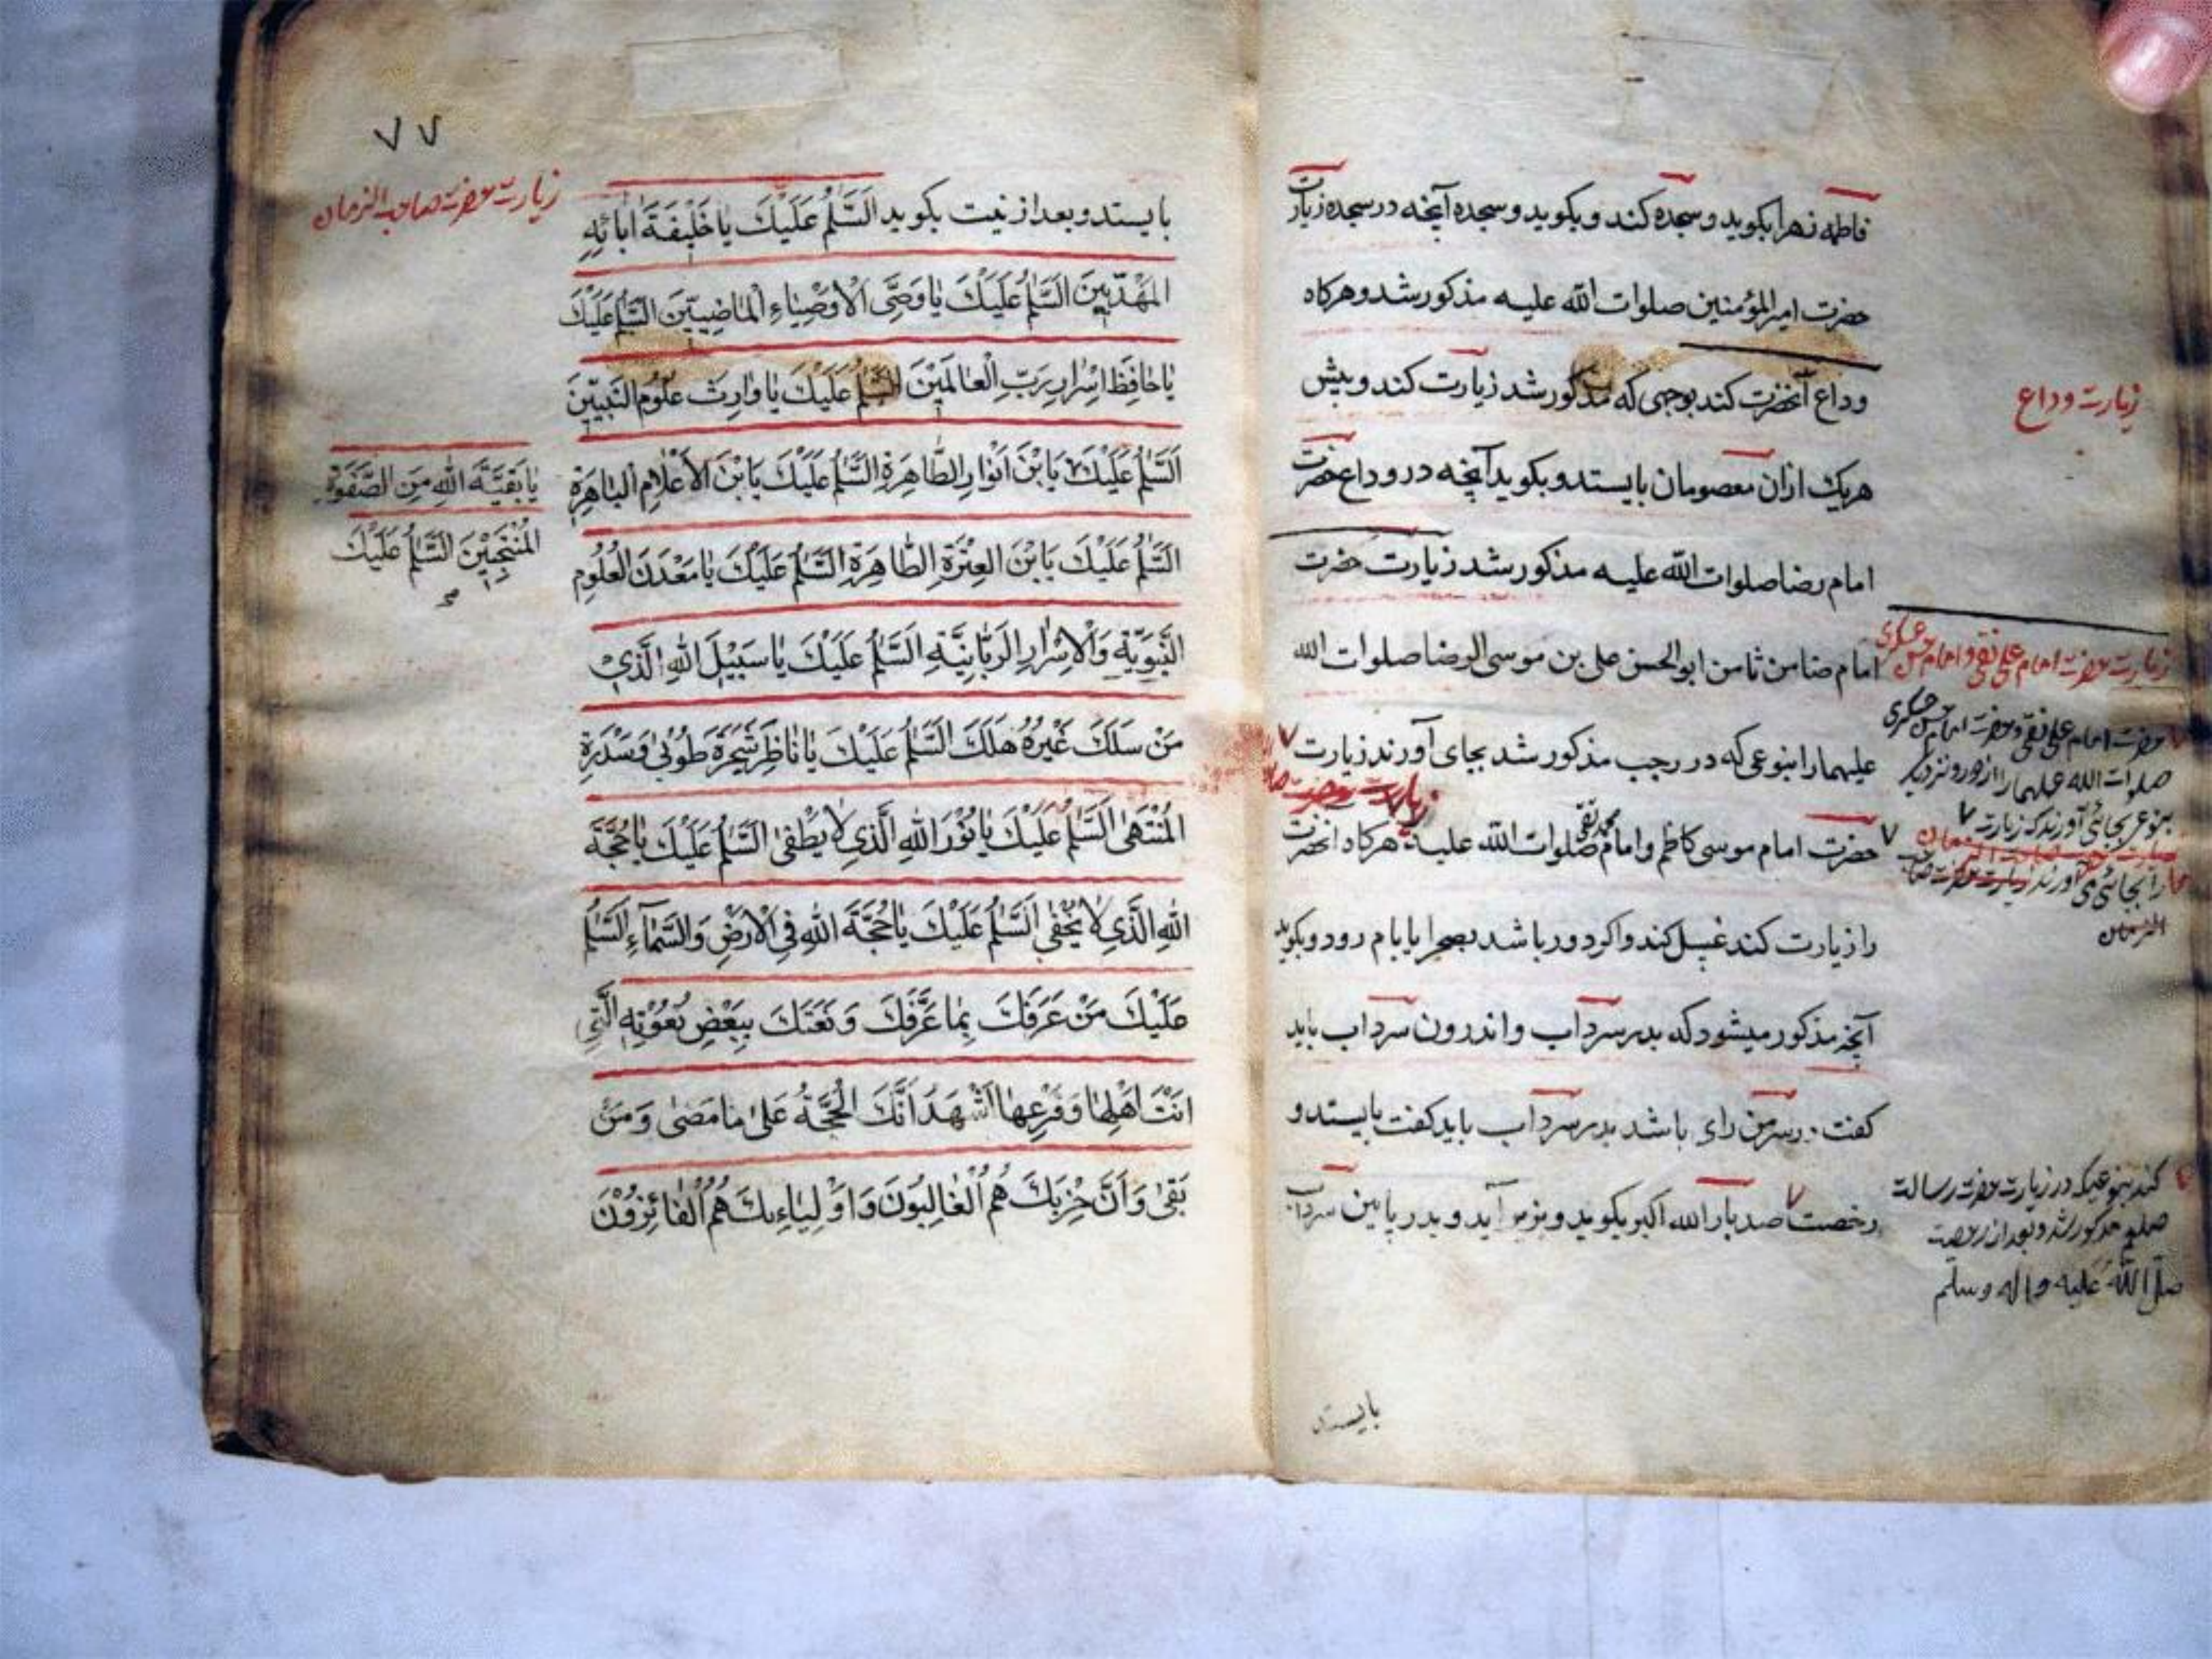 فاطمه زهرا بکوید و سجده کند و بکوید و سجده آنچه در سجده زیارت
حضرت امیر المؤمنین صلوات الله علیه مذکور شد و هرکاه
وداع آنحضرت کند بوجهی که مذکور شد زیارت کند و پیش
هریک ازان معصومان بایستد و بکوید آنچه در وداع حضرت
امام رضا صلوات الله علیه مذکور شد زیارت حضرت
امام ضامن ثامن ابو الحسن علی بن موسی الرضا صلوات الله
علیهما را بنوعی که در رجب مذکور شد بجای آورند زیارت
حضرت امام موسی کاظم و امام محمد تقی صلوات الله علیه هرکاه آنحضرت
را زیارت کند غسل کند و اکر دور باشد بصحرا یا بام رود و بکوید
آنچه مذکور میشود که بدر سرداب و اندرون سرداب باید
کفت در سر من رای باشد بدر سرداب باید کفت بایستد و
رخصت صد بار الله اکبر بکوید و بزیر آید و بدر پایین سرداب
بایستد
زیارت وداع
زیارت حضرت امام علی نقی و امام حسن عسکری
حضرت امام علی نقی و حضرت امام حسن عسکری
صلوات الله علیهما را از دور و نزدیک
بنوعی بجای آورند که زیارت
الزمان
کند بنوعیکه در زیارت حضرت رسالت
صلعم مذکور شد و بعد از رخصت
صلی الله علیه و اله و سلم
٧٧
زیارت حضرت صاحب الزمان
بایستد و بعد از نیت بکوید اَلسَّلٰمُ عَلَیْكَ یٰا خَلیٖفَةَ اٰبٰائِهِ
الْمَهْدِیّیٖنَ اَلسَّلٰمُ عَلَیْكَ یٰا وَصِیَّ الْاَوْصِیٰاءِ الْمٰاضییٖنَ اَلسَّلٰمُ عَلَیْكَ
یٰا حٰافِظَ اَسْرٰارِ رَبِّ الْعٰالَمیٖنَ اَلسَّلٰمُ عَلَیْكَ یٰا وٰارِثَ عُلُومِ النَّبِیّیٖنَ
اَلسَّلٰمُ عَلَیْكَ یَا بْنَ اَنْوٰارِ الطّٰاهِرَةِ اَلسَّلٰمُ عَلَیْكَ یَا بْنَ الْاَعْلٰامِ الْبٰاهِرَةِ
اَلسَّلٰمُ عَلَیْكَ یَا بْنَ الْعِتْرَةِ الطّٰاهِرَةِ اَلسَّلٰمُ عَلَیْكَ یٰا مَعْدَنَ الْعُلُومِ
النَّبَوِیَّةِ وَالْاَسْرٰارِ الرَّبّٰانِیَّةِ اَلسَّلٰمُ عَلَیْكَ یٰا سَبیٖلَ اللّٰهِ الَّذیٖ
مَنْ سَلَكَ غَیْرَهُ هَلَكَ اَلسَّلٰمُ عَلَیْكَ یٰا نٰاظِرَ شَجَرَةِ طُوبٰی وَ سِدْرَةِ
الْمُنْتَهٰی اَلسَّلٰمُ عَلَیْكَ یٰا نُورَ اللّٰهِ الَّذی لٰا یُطْفٰی اَلسَّلٰمُ عَلَیْكَ یٰا حُجَّةَ
اللّٰهِ الَّذی لٰا یَخْفٰی اَلسَّلٰمُ عَلَیْكَ یٰا حُجَّةَ اللّٰهِ فِی الْاَرْضِ وَالسَّمٰاءِ اَلسَّلٰمُ
عَلَیْكَ مَنْ عَرَفَكَ بِمٰا عَرَّفَكَ وَ نَعَتَكَ بِبَعْضِ نُعُوْتِهِ الَّتی
اَنْتَ اَهْلِهٰا وَ فَرْعِهٰا اَشْهَدُ اَنَّكَ الْحُجَّةُ عَلٰی مٰا مَضٰی وَ مَنْ
بَقٰی وَ اَنَّ حِزْبَكَ هُمُ الْغٰالِبُونَ وَ اَوْلِیٰاءِكَ هُمُ الْفٰائِزُوْنَ
یٰا بَقِیَّةَ اللّٰهِ مِنَ الصَّفْوَةِ
الْمُنْتَجَبیٖنَ اَلسَّلٰمُ عَلَیْكَ
صح